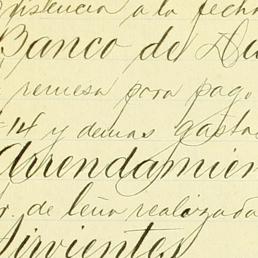 istencia a la fech
Banco de Du
remesa para pago
#14 y demas gasto
Arrendamien
r. de leña realizada
Sirvientes